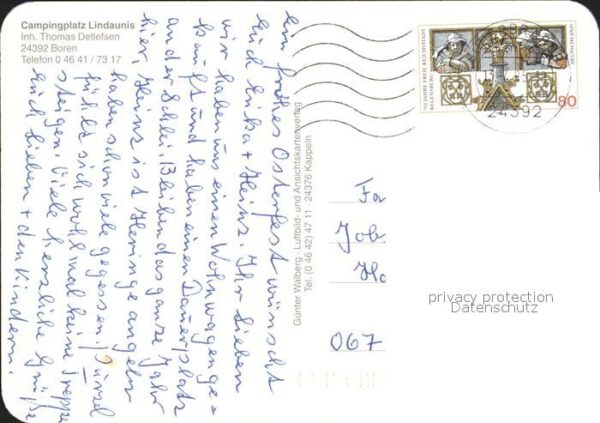 Campingplatz Lindaunis
Inh. Thomas Detlefsen
24392 Boren
Telefon 0 46 41 / 73 17
Ein frohes Osterfest wünscht
Euch Erika + Heinz. Ihr Lieben
wir haben uns einen Wohnwagen ge=
kauft und haben einen Dauerplatz
an der Schlei. Bleiben das ganze Jahr
hier, Heinz ist Heringe angeln
haben schon viele gegessen.
fühlt sich wohl mal keine Treppe
steigen. Viele herzliche Grüße
Euch Lieben + den Kindern.
Günter Walberg · Luftbild- und Ansichtskartenverlag
Tel. (0 46 42) 47 11 · 24376 Kappeln
750 JAHRE FREIE REICHSSTADT
REGENSBURG
DEUTSCHLAND
80
24392
Fa
Joh
Ho
067
privacy protection
Datenschutz